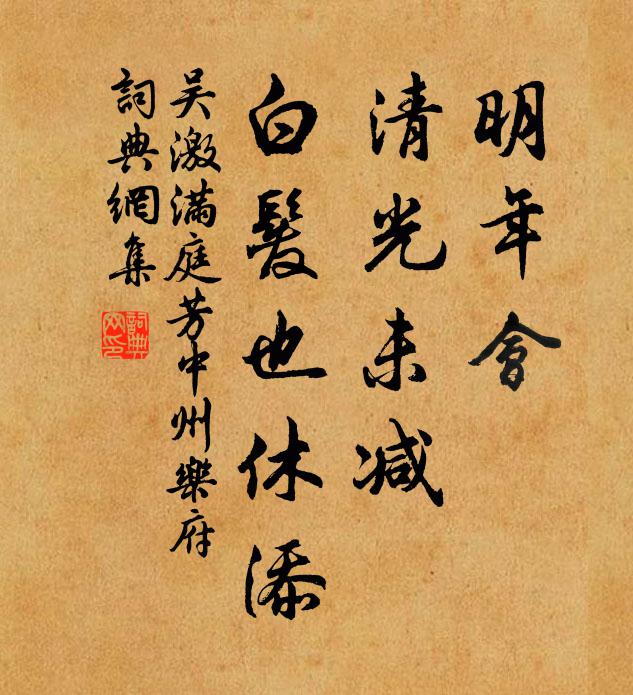 明年會
清光未減
白髮也休添
吳激滿庭芳中州樂府
詞典網集
詞典網印